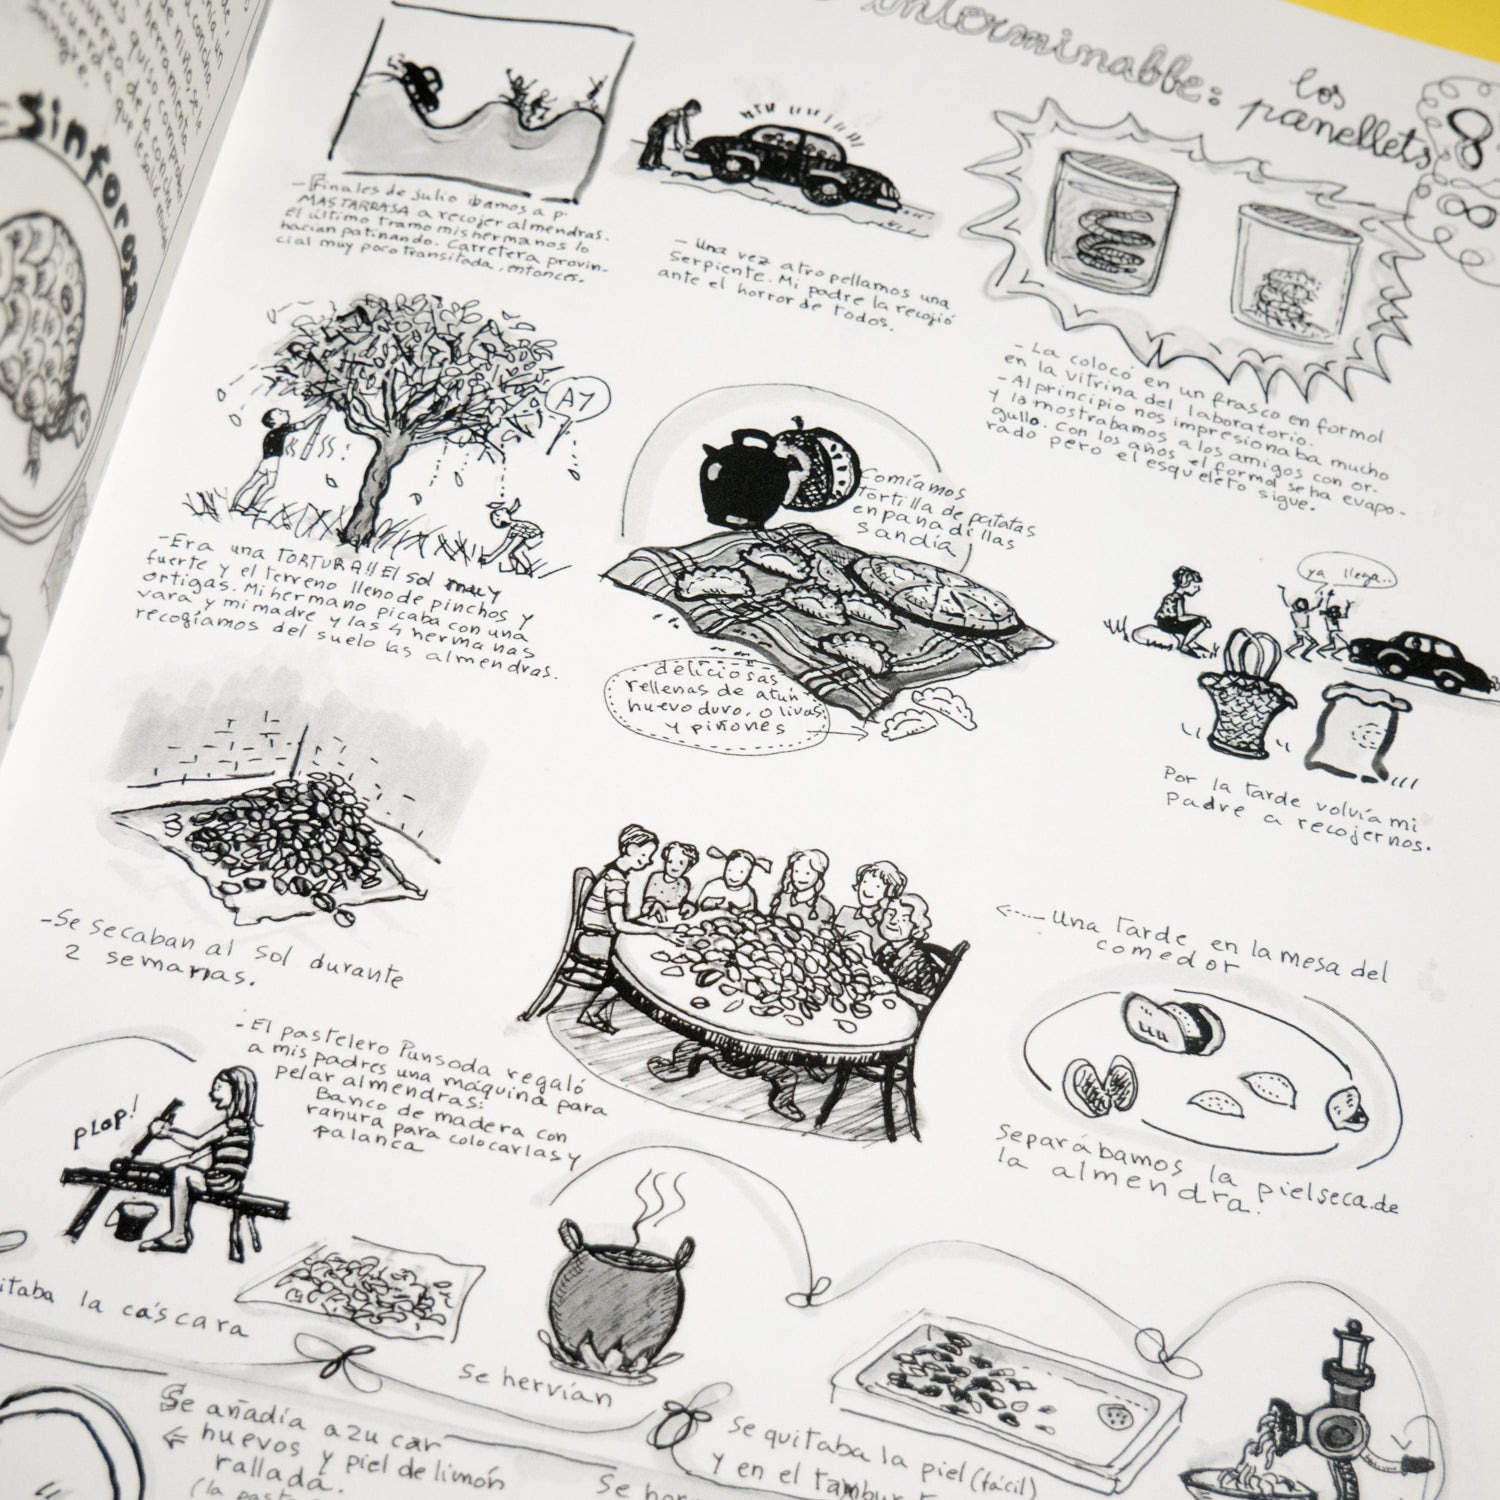 interminable: los
panellets
8
- Finales de Julio ibamos a p.
MASTARRASA a recojer almendras.
El último tramo mis hermanos lo
hacían patinando. Carretera provin-
cial muy poco transitada, entonces.
- Una vez atropellamos una
serpiente. Mi padre la recojió
ante el horror de todos.
- La colocó en un frasco en formol
en la vitrina del laboratorio.
- Al principio nos impresionaba mucho
y la mostrabamos a los amigos con or-
gullo. Con los años el formol se ha evapo-
rado pero el esqueleto sigue.
AY
- Era una TORTURA!! El sol muy
fuerte y el terreno lleno de pinchos y
ortigas. Mi hermano picaba con una
vara, y mi madre y las 4 hermanas
recogíamos del suelo las almendras.
Comíamos
tortilla de patatas
empanadillas
sandía
deliciosas
rellenas de atún
huevo duro, olivas
y piñones
ya llega..
Por la tarde volvía mi
padre a recojernos.
- Se secaban al sol durante
2 semanas.
- Una tarde, en la mesa del
comedor
Separábamos la piel seca de
la almendra.
- El pastelero Punsoda regaló
a mis padres una máquina para
pelar almendras:
Banco de madera con
ranura para colocarlas y
palanca
plop!
itaba la cáscara
se hervían
Se quitaba la piel (fácil)
y en el
Se añadía azucar
huevos y piel de limón
rallada.
(la
Se
Sinforosa